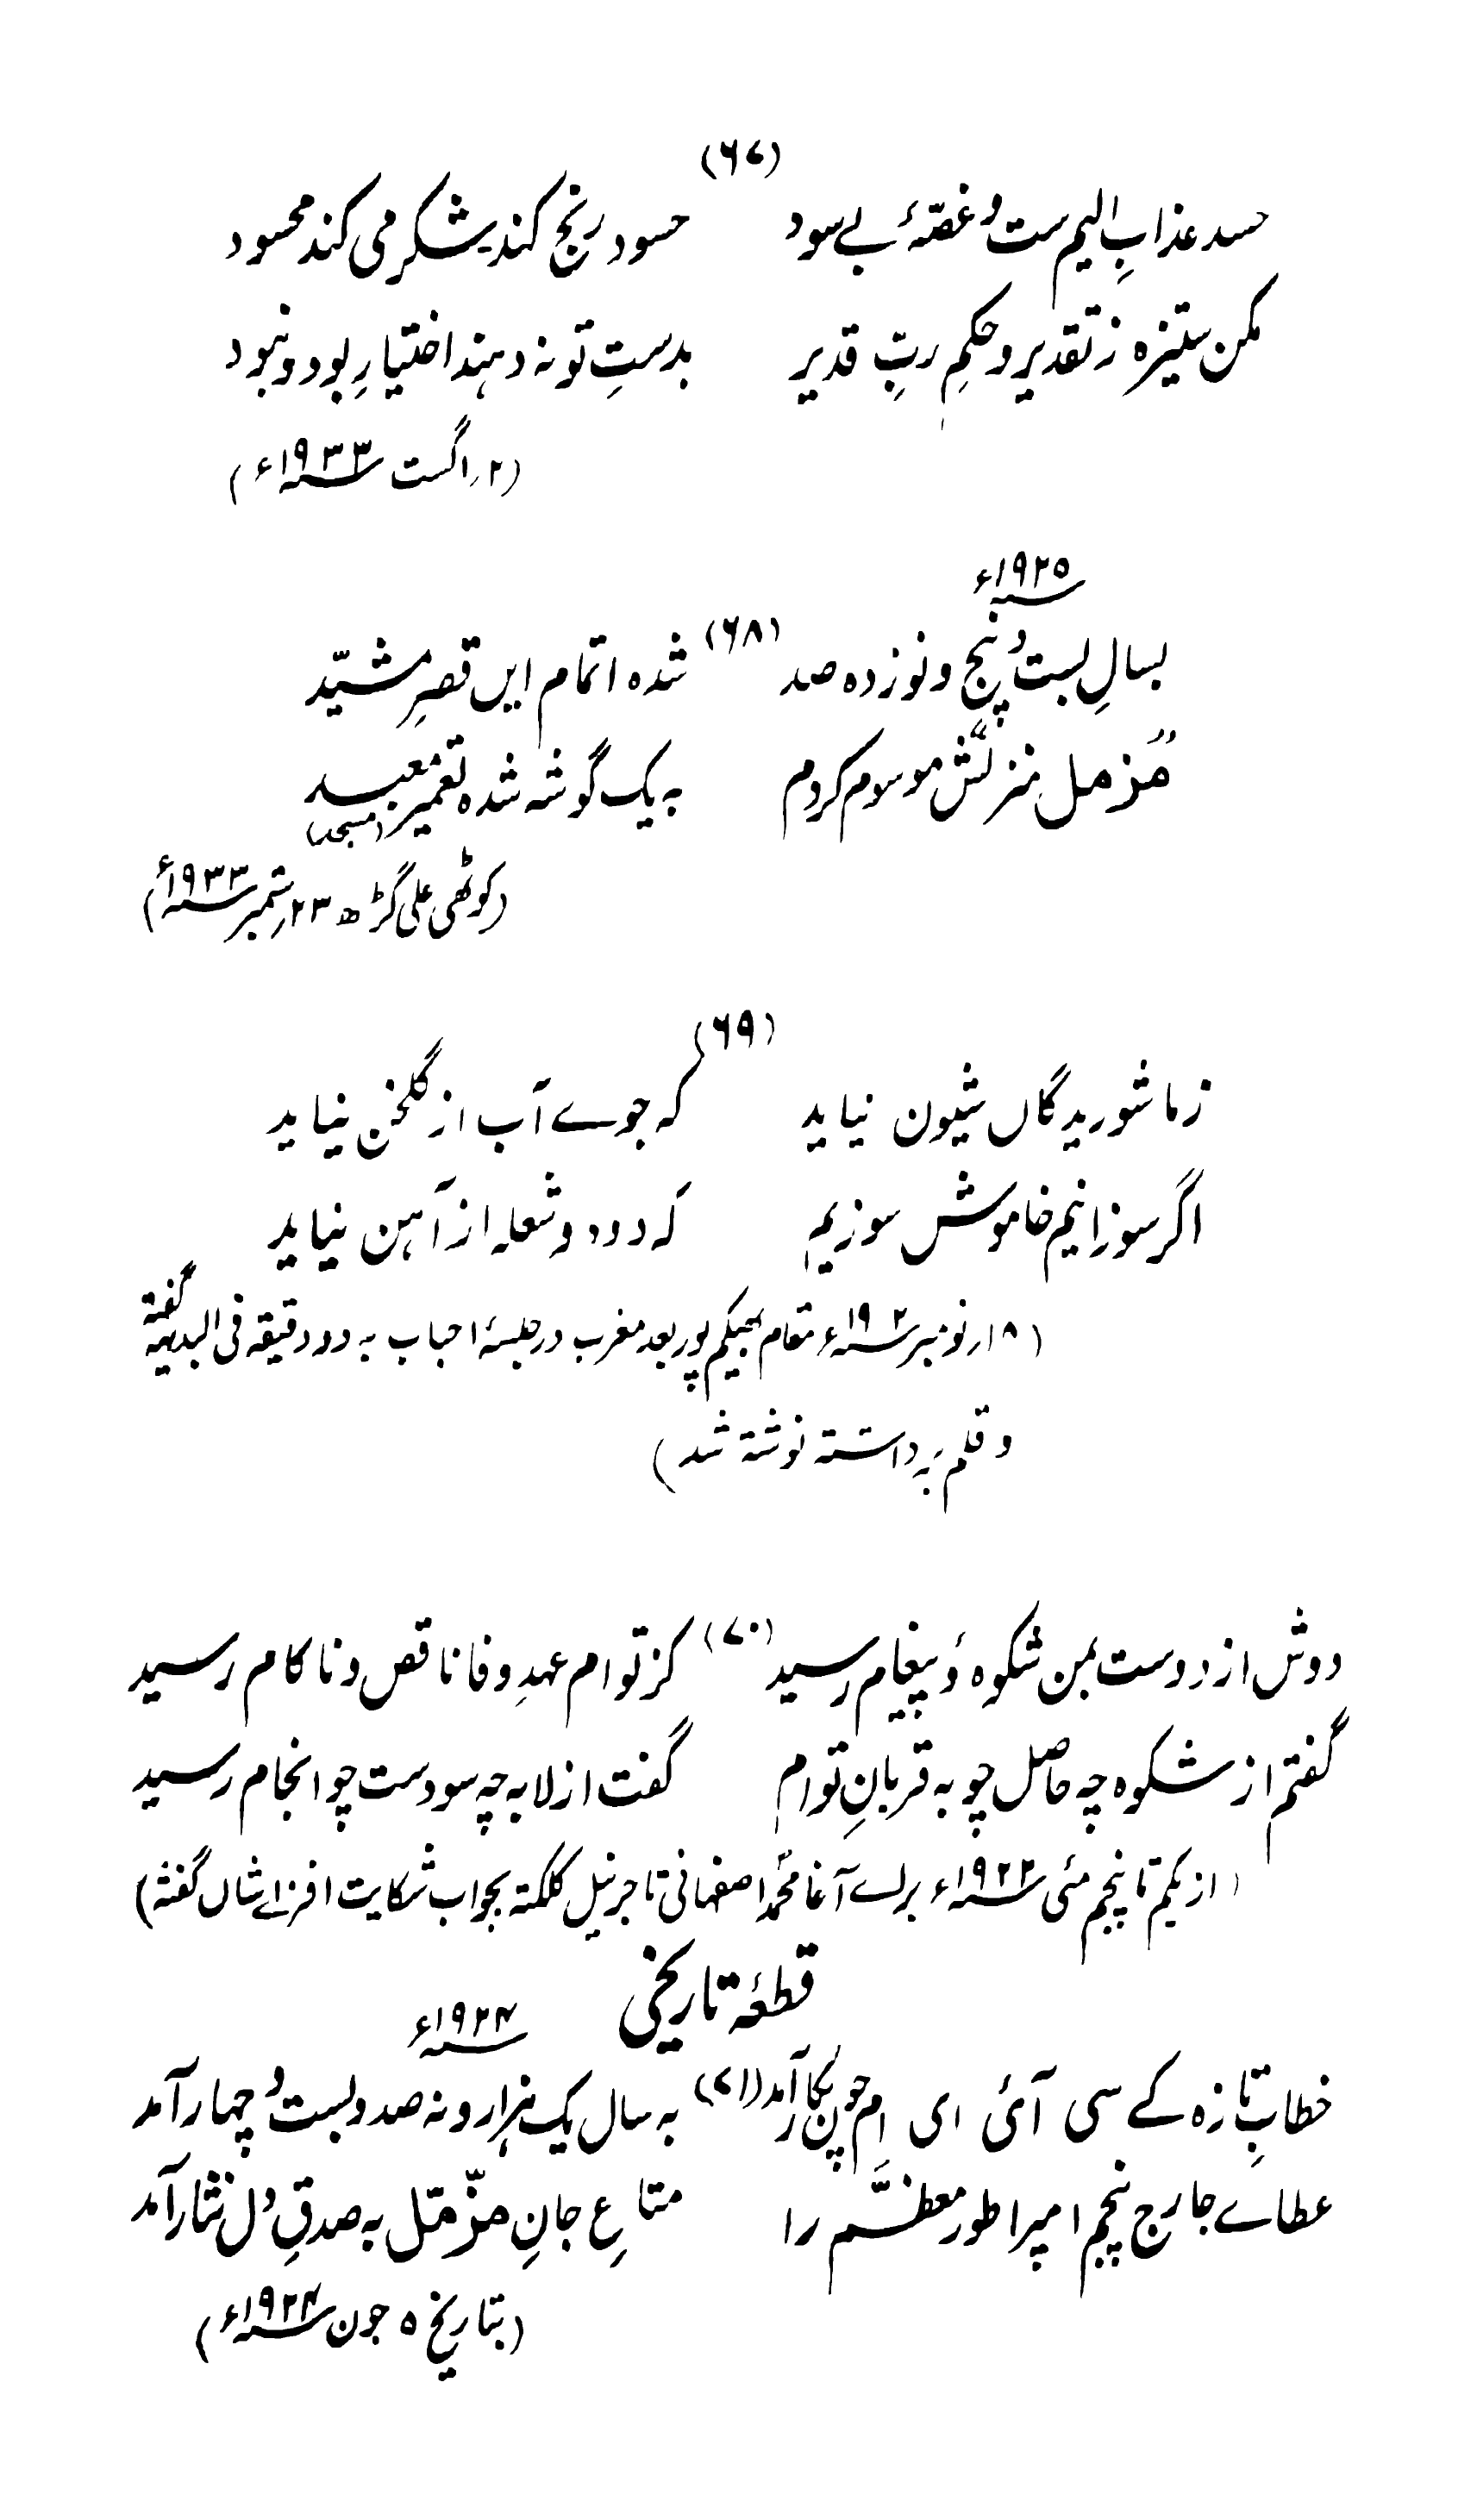 (۶۷)
حسد عذابِ الیم ست و غصّۂ بے سود حسود رنج کند یشکر می کند محسود
مکن ستیزہ ز تقدیر و حکمِ ربِّ قدیر بدستِ تو نہ دہند اختیارِ بود و نبود
(۲؍ اگست ۱۹۳۳ء)
۱۹۲۵ء
بسالِ بست و پنج و نوزدہ صد (۶۸) شدہ اتمام ایں قصرِ مشیّد
مُزمل منزلش موسوم کردم بہ یک گوشہ شدہ تعمیر معبد
(مسجد)
(کوٹھی علی گڑھ ۲۳ ستمبر ۱۹۳۳ء)
(۶۹)
ز ما شوریدگاں شیون نیاید کہ جوے آب از گلخن نیاید
اگر سوزانیم خاموش سوزیم کہ دود و شعلہ از آہن نیاید
(۱۵؍ نومبر ۱۹۲ء مقام بھیکم پور بعد مغرب در جلسۂ احباب بہ دو دقیقہ فی البدیہہ گفتہ
و قلم برداشتہ نوشتہ شد)
دوش از دوست بمن شکوہ و پیغام رسید (۷۰) کز توام عہدِ وفا ناقص و ناکام رسید
گفتم از شکوہ چہ حاصل چو بہ قربانِ توام گفت از لابہ چہ سودست چو انجام رسید
(از یکم تا پنجم مئی ۱۹۲۲ء براے آغا محمد اصفہانی تاجر نیل کلکتہ بجواب شکایت افزاے شاں گفتہ)
قطعۂ تاریخی
۱۹۲۴ء
خطابِ تازہ کے سی آئی ای ام چوں بکار آمد (۷۱) بہ سال یک ہزار و نہ صد و بست و چہار آمد
عطاے جارج پنجم امپراطور معظّم را متاعِ جانِ مزّمّل بہ صدقِ دل نثار آمد
(بتاریخ ۵ جون ۱۹۲۴ء)